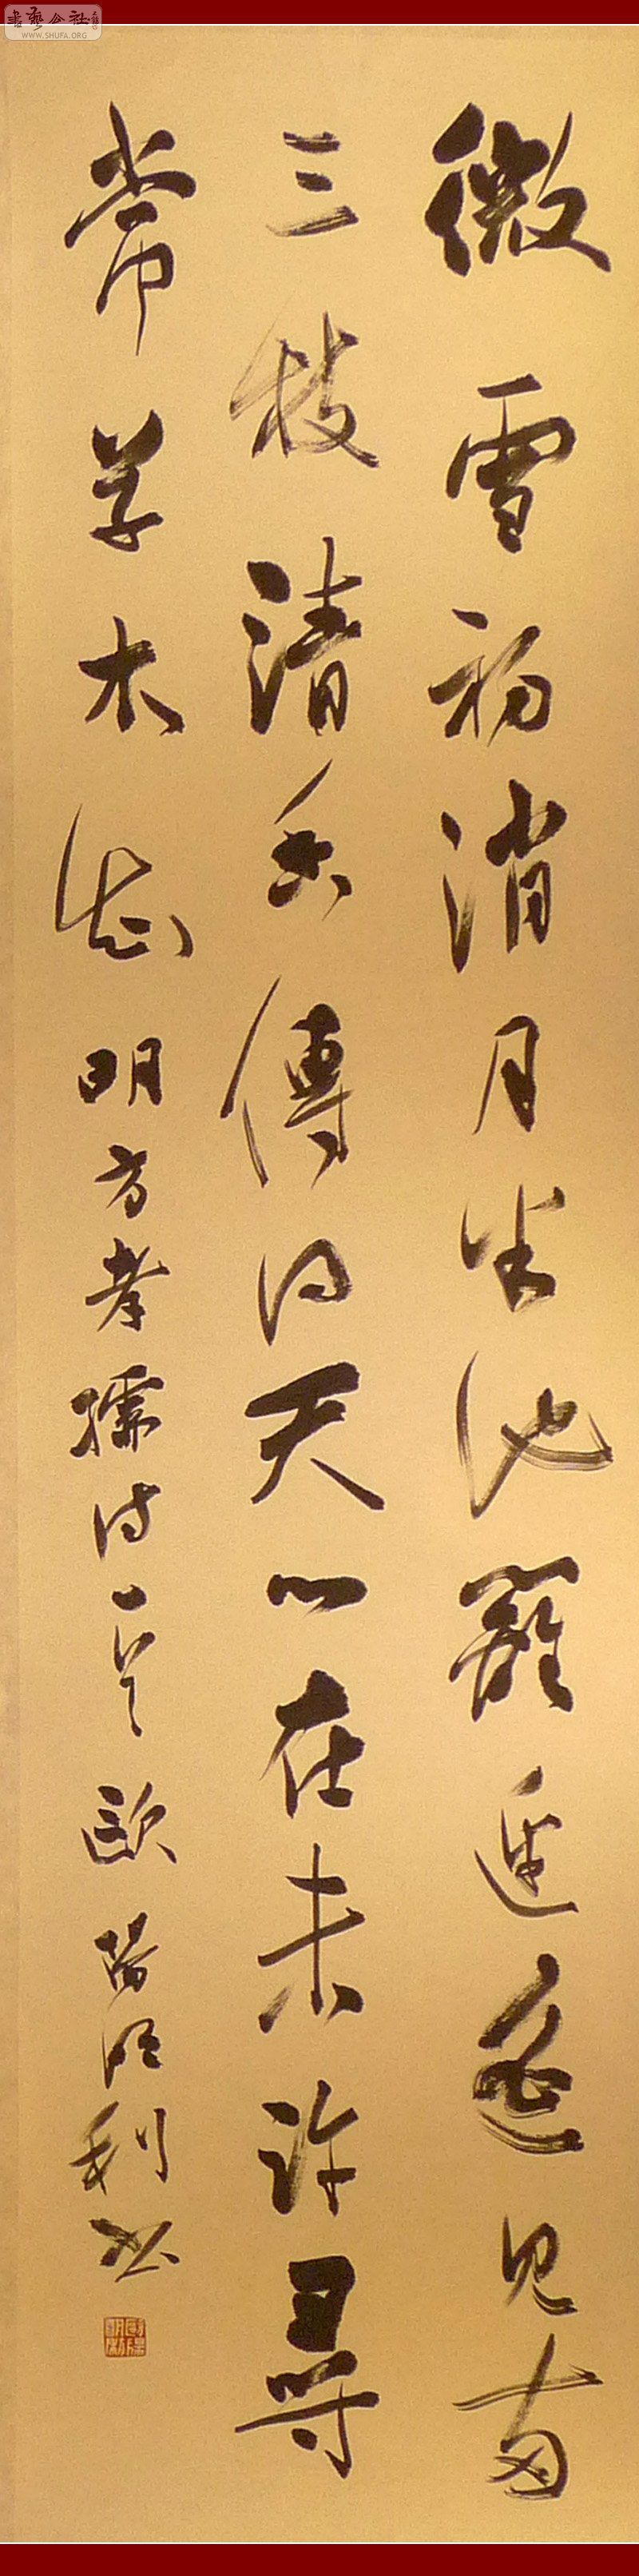 書藝公社
WWW.SHUFA.ORG
微雪初消月半池籬邊遙見兩
三枝清香傳得天心在未許尋
常草木知 明方孝孺詩一首 歐陽利書